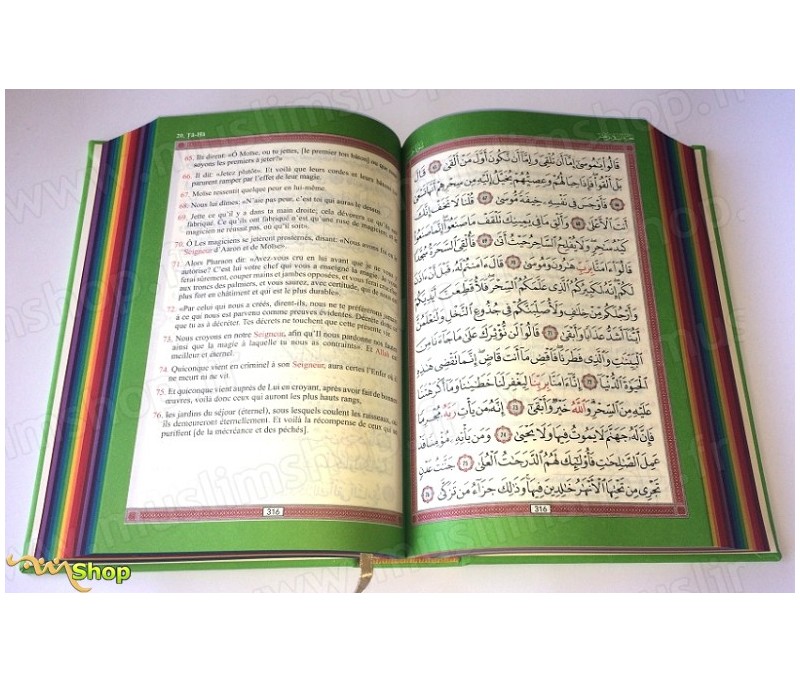 20. Tâ-Hâ
65. Ils dirent: «Ô Moïse, ou tu jettes, [le premier ton bâton] ou que nous
soyons les premiers à jeter?»
66. Il dit: «Jetez plutôt». Et voilà que leurs cordes et leurs bâtons lui
parurent ramper par l'effet de leur magie.
67. Moïse ressentit quelque peur en lui-même.
68. Nous lui dîmes: «N'aie pas peur, c'est toi qui auras le dessus.
69. Jette ce qu'il y a dans ta main droite; cela dévorera ce qu'ils ont
fabriqué. Ce qu'ils ont fabriqué n'est qu'une ruse de magicien; et le
magicien ne réussit pas, où qu'il soit».
70. Ô Les magiciens se jetèrent prosternés, disant: «Nous avons foi en le
Seigneur d'Aaron et de Moïse».
71. Alors Pharaon dit: «Avez-vous cru en lui avant que je ne vous y
autorise? C'est lui votre chef qui vous a enseigné la magie. Je vous
ferai sûrement, couper mains et jambes opposées, et vous ferai crucifier
aux troncs des palmiers, et vous saurez, avec certitude, qui de nous est
plus fort en châtiment et qui est le plus durable».
72. «Par celui qui nous a créés, dirent-ils, nous ne te préférerons jamais
à ce qui nous est parvenu comme preuves évidentes. Décrète donc ce
que tu as à décréter. Tes décrets ne touchent que cette présente vie.
73. Nous croyons en notre Seigneur, afin qu'Il nous pardonne nos fautes
ainsi que la magie à laquelle tu nous as contraints». Et Allah est
meilleur et éternel.
74. Quiconque vient en criminel à son Seigneur, aura certes l'Enfer où il
ne meurt ni ne vit.
75. Et quiconque vient auprès de Lui en croyant, après avoir fait de bonnes
œuvres, voilà donc ceux qui auront les plus hauts rangs,
76. les jardins du séjour (éternel), sous lesquels coulent les ruisseaux, où
ils demeureront éternellement. Et voilà la récompense de ceux qui se
purifient [de la mécréance et des péchés].
316
قَالُوا۟ يَٰمُوسَىٰٓ إِمَّآ أَن تُلْقِىَ وَإِمَّآ أَن نَّكُونَ أَوَّلَ مَنْ أَلْقَىٰ ٦٥ قَالَ
بَلْ أَلْقُوا۟ فَإِذَا حِبَالُهُمْ وَعِصِيُّهُمْ يُخَيَّلُ إِلَيْهِ مِن سِحْرِهِمْ أَنَّهَا تَسْعَىٰ
٦٦ فَأَوْجَسَ فِى نَفْسِهِۦ خِيفَةً مُّوسَىٰ ٦٧ قُلْنَا لَا تَخَفْ إِنَّكَ
أَنتَ ٱلْأَعْلَىٰ ٦٨ وَأَلْقِ مَا فِى يَمِينِكَ تَلْقَفْ مَا صَنَعُوٓا۟ إِنَّمَا صَنَعُوا۟
كَيْدُ سَٰحِرٍ وَلَا يُفْلِحُ ٱلسَّاحِرُ حَيْثُ أَتَىٰ ٦٩ فَأُلْقِىَ ٱلسَّحَرَةُ سُجَّدًا
قَالُوٓا۟ ءَامَنَّا بِرَبِّ هَٰرُونَ وَمُوسَىٰ ٧٠ قَالَ ءَامَنتُمْ لَهُۥ قَبْلَ أَنْ ءَاذَنَ
لَكُمْ إِنَّهُۥ لَكَبِيرُكُمُ ٱلَّذِى عَلَّمَكُمُ ٱلسِّحْرَ فَلَأُقَطِّعَنَّ أَيْدِيَكُمْ
وَأَرْجُلَكُم مِّنْ خِلَٰفٍ وَلَأُصَلِّبَنَّكُمْ فِى جُذُوعِ ٱلنَّخْلِ وَلَتَعْلَمُنَّ
أَيُّنَآ أَشَدُّ عَذَابًا وَأَبْقَىٰ ٧١ قَالُوا۟ لَن نُّؤْثِرَكَ عَلَىٰ مَا جَآءَنَا مِنَ
ٱلْبَيِّنَٰتِ وَٱلَّذِى فَطَرَنَا فَٱقْضِ مَآ أَنتَ قَاضٍ إِنَّمَا تَقْضِى هَٰذِهِ
ٱلْحَيَوٰةَ ٱلدُّنْيَآ ٧٢ إِنَّآ ءَامَنَّا بِرَبِّنَا لِيَغْفِرَ لَنَا خَطَٰيَٰنَا وَمَآ أَكْرَهْتَنَا
عَلَيْهِ مِنَ ٱلسِّحْرِ وَٱللَّهُ خَيْرٌ وَأَبْقَىٰٓ ٧٣ إِنَّهُۥ مَن يَأْتِ رَبَّهُۥ مُجْرِمًا
فَإِنَّ لَهُۥ جَهَنَّمَ لَا يَمُوتُ فِيهَا وَلَا يَحْيَىٰ ٧٤ وَمَن يَأْتِهِۦ مُؤْمِنًا قَدْ
عَمِلَ ٱلصَّٰلِحَٰتِ فَأُو۟لَٰٓئِكَ لَهُمُ ٱلدَّرَجَٰتُ ٱلْعُلَىٰ ٧٥ جَنَّٰتُ عَدْنٍ
تَجْرِى مِن تَحْتِهَا ٱلْأَنْهَٰرُ خَٰلِدِينَ فِيهَا وَذَٰلِكَ جَزَآءُ مَن تَزَكَّىٰ ٧٦
316
Shop
www.muslimshop.fr